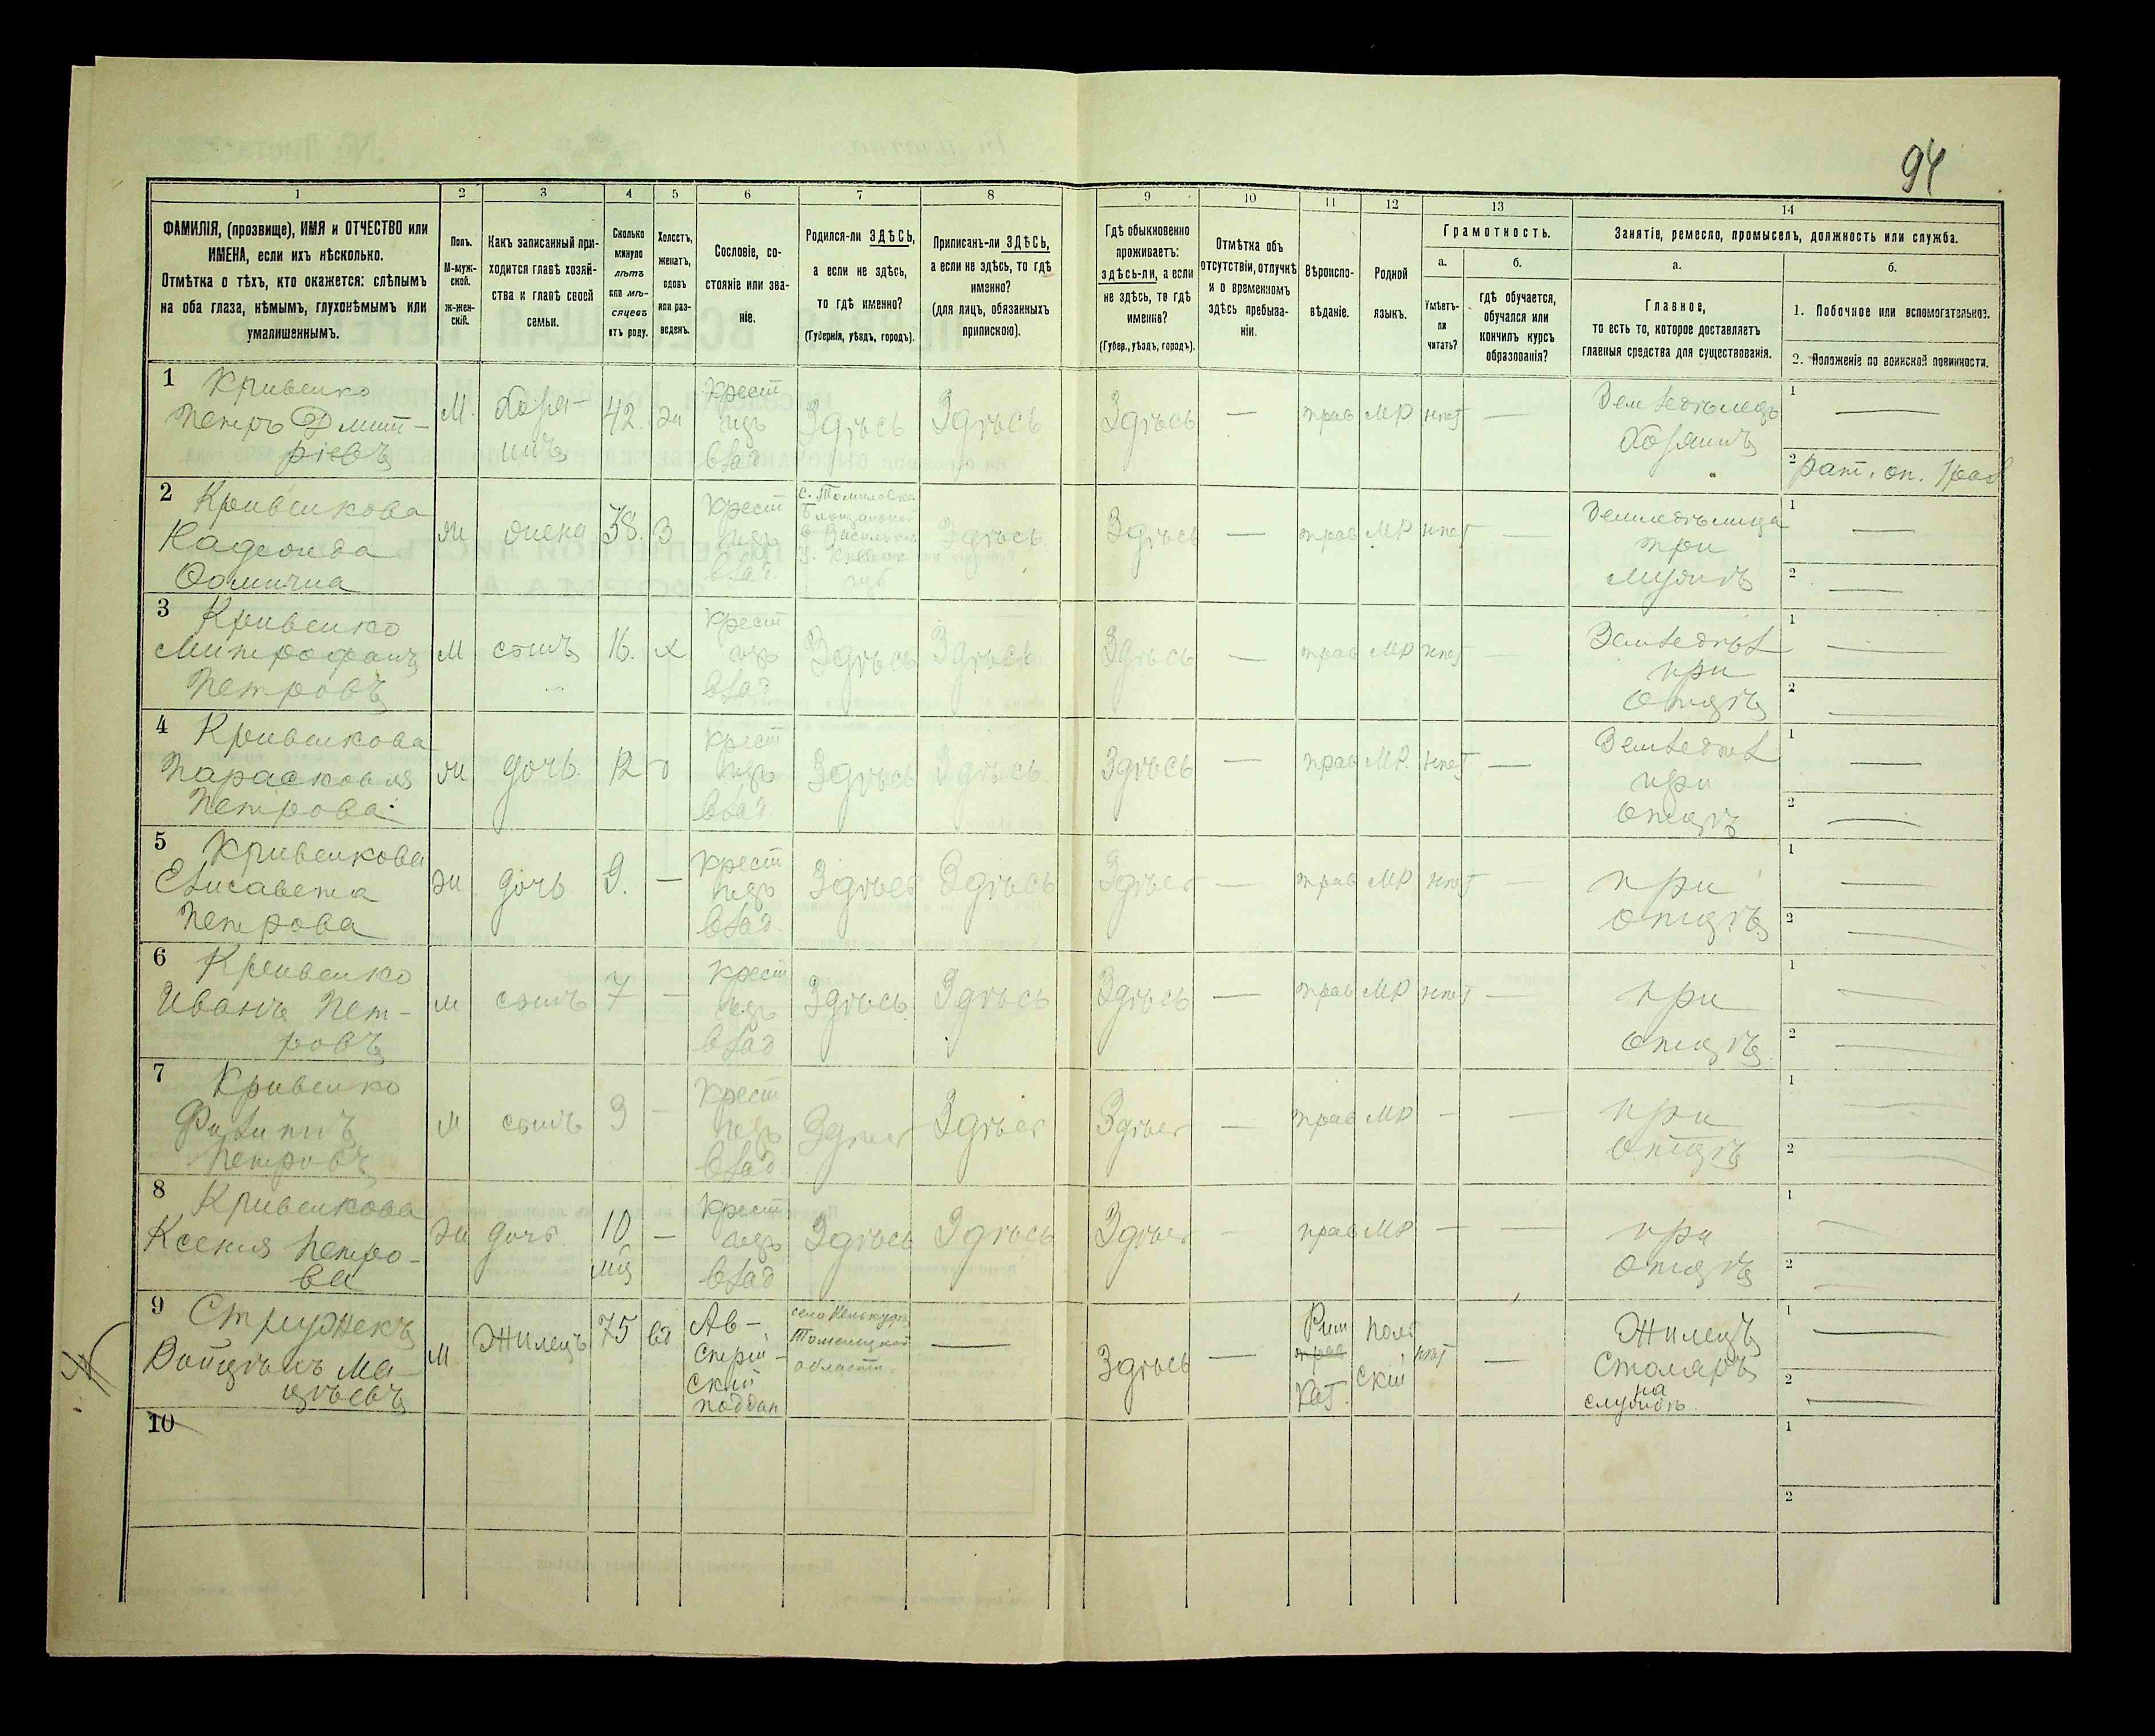 94
1 2 3 4 5 6 7 8 9 10 11 12 13 14
ФАМИЛІЯ, (прозвище), ИМЯ и ОТЧЕСТВО или
ИМЕНА, если ихъ нѣсколько.
Отмѣтка о тѣхъ, кто окажется: слѣпымъ
на оба глаза, нѣмымъ, глухонѣмымъ или
умалишеннымъ.
Полъ.
М-муж-
ской.
Ж-жен-
скій.
Какъ записанный при-
ходится главѣ хозяй-
ства и главѣ своей
семьи.
Сколько
минуло
лѣтъ
или мѣ-
сяцевъ
отъ роду.
Холостъ,
женатъ,
вдовъ
или раз-
веденъ.
Сословіе, со-
стояніе или зва-
ніе.
Родился-ли ЗДѢСЬ,
а если не здѣсь,
то гдѣ именно?
(Губернія, уѣздъ, городъ).
Приписанъ-ли ЗДѢСЬ,
а если не здѣсь, то гдѣ
именно?
(для лицъ, обязанныхъ
припискою).
Гдѣ обыкновенно
проживаетъ:
здѣсь-ли, а если
не здѣсь, то гдѣ
именно?
(Губер., уѣздъ, городъ).
Отмѣтка объ
отсутствіи, отлучкѣ
и о временномъ
здѣсь пребыва-
ніи.
Вѣроиспо-
вѣданіе.
Родной
языкъ.
Грамотность.
а.
Умѣетъ-
ли
читать?
б.
гдѣ обучается,
обучался или
кончилъ курсъ
образованія?
Занятіе, ремесло, промыселъ, должность или служба.
а.
Главное,
то есть то, которое доставляетъ
главныя средства для существованія.
б.
1. Побочное или вспомогательное.
2. Положеніе по воинской повинности.
1 Кривенко
Петръ Дмит-
ріевъ
М. хозя-
инъ
42. Ж
Крест
изъ
влад
Здѣсь Здѣсь Здѣсь — прав МР. нѣт —
Земледѣлецъ
Хозяинъ
1 —
2 рат. оп.
2 Кривенкова
Ѳомична
Ж жена 38. З
Крест
изъ
влад.
с. Томиловка
губ
Здѣсь Здѣсь — прав МР нѣт —
Земледѣлица
при
мужѣ
1 —
2 —
3 Кривенко
Митрофанъ
Петровъ
М сынъ 16. х
Крест
изъ
влад
Здѣсь Здѣсь Здѣсь — прав МР нѣт —
Земледѣл
при
отцѣ
1 —
2 —
4 Кривенкова
Парасковия
Петрова
Ж дочь. 12 д
Крест
изъ
влад.
Здѣсь Здѣсь Здѣсь — прав МР. нѣт —
Земледѣл
при
отцѣ
1 —
2 —
5 Кривенкова
Елисавета
Петрова
Ж дочь 9. —
Крест
изъ
влад.
Здѣсь Здѣсь Здѣсь — прав МР нѣт —
при
отцѣ
1 —
2 —
6 Кривенко
Иванъ Пет-
ровъ
м сынъ 7 —
Крест
изъ
влад
Здѣсь Здѣсь Здѣсь — прав МР нѣт —
при
отцѣ
1 —
2 —
7 Кривенко
Филипъ
Петровъ
м сынъ 3 —
Крест
изъ
влад
Здѣсь Здѣсь Здѣсь — прав МР — —
при
отцѣ
1 —
2 —
8 Кривенкова
Ксения Петро-
ва
Ж дочь. 10 —
мц
Крест
изъ
влад
Здѣсь Здѣсь Здѣсь — прав МР — —
при
отцѣ
1 —
2 —
9 Стружекъ
Войцѣхъ Ма-
цѣевъ
М Жилецъ 75 вд
Ав-
стрій-
скій
поддан
село
области.
— Здѣсь —
Рим
прав
Кат.
поль
скій
нѣт —
Жилецъ
Столяръ
на
службѣ
1 —
2 —
10
1
2